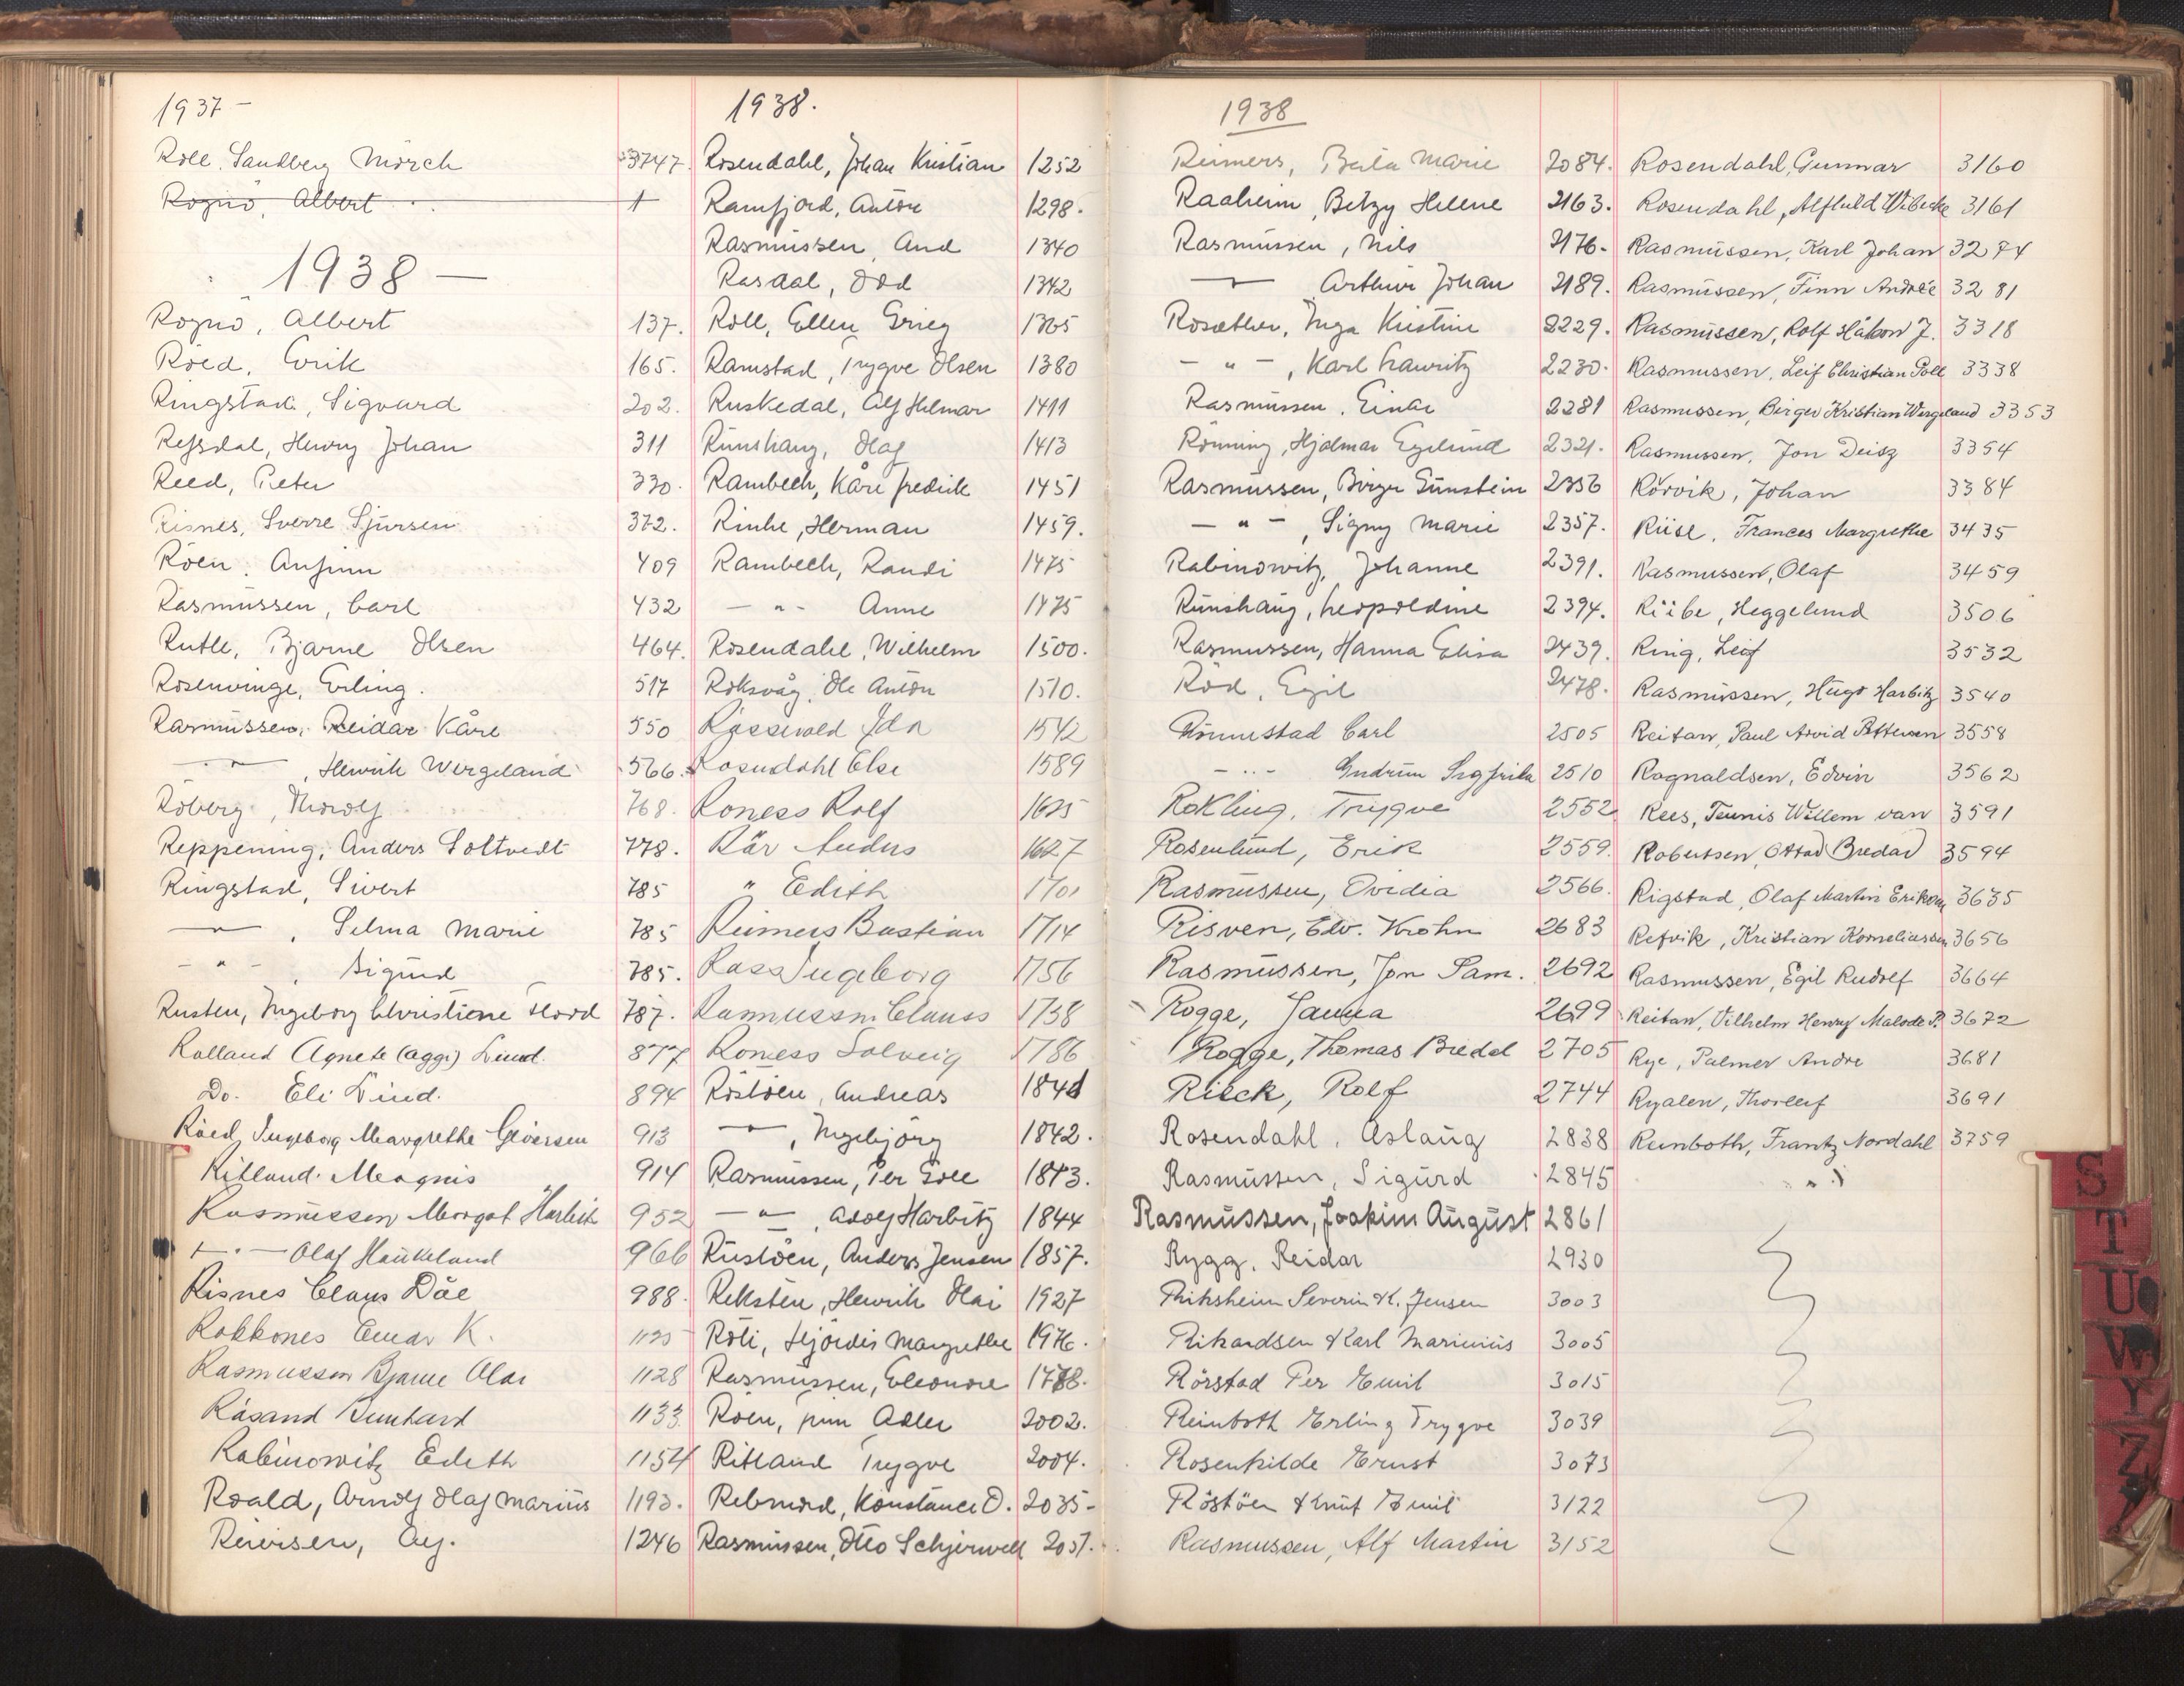 1937 -
Roll, Sandberg Mörch 3747.
Rognö, Albert 1
1938 —
Rognö, Albert 137.
Röed, Erik 165.
Ringstad, Sigvard 202.
Refsdal, Henry Johan 311
Reed, Peter 330.
Risnes, Sverre Sjursen 372.
Röen, Anfinn 409
Rasmussen, Carl 432
Rutle, Bjarne Olsen 464.
Rosenvinge, Erling. 517
Rasmussen, Reidar Kåre 550
— " — , Henrik Wergeland 566.
Röberg, Thorolf 768.
Reppening, Anders Soltvedt 778.
Ringstad, Sivert 785
— " — , Selma Marie 785
— " — , Sigurd 785.
Rusten, Ingeborg Christiane Hord 787.
Rolland Agnete (Aggi) Lind. 877
Do. Eli Lind. 894
Röed, Ingeborg Margrethe Giversen 913
Ritland Magnus 914
Rasmussen Margot Harbitz 952
— " — Olaf Haukeland 966
Risnes Claus Dåe 988.
Rokkones Einar K. 1125
Rasmussen Bjarne Olai 1128
Råsand Bernhard 1133.
Rabinowitz Edith 1154
Roald, Arnolf Olaf Marius 1193.
Reiersen, Aug. 1246
1938.
Rosendahl, Johan Kristian 1252
Ramfjord, Anton 1298.
Rasmussen, And 1340
Rasdal, Odd 1342
Roll, Ellen Grieg 1365
Ramstad, Trygve Olsen 1380
Ruskedal, Alf Helmar 1411
Runshaug, Olaf 1413
Rambech, Kåre Fredrik 1451
Rinhe, Herman 1459.
Rambech, Randi 1475
— " — Anne 1475
Rosendahl, Wilhelm 1500.
Roksvåg, Ole Anton 1510.
Rossevold Ida 1542
Rosendahl Else 1589
Roness Rolf 1625
Rår Audus 1627
" Edith 1701
Reimers Bastian 1714
Rass Ingeborg 1756
Rasmussen Clauss 1738
Roness Solveig 1786
Röstöen, Andreas 1841
— " — , Ingebjörg 1842.
Rasmussen, Per Goll 1843.
— " — , Adolf Harbitz 1844
Rustöen, Anders Jensen 1857.
Reksten, Henrik Olai 1927
Röti, Hjördis Margrethe 1976.
Rasmussen, Eleonore 1788.
Röen, Finn Adler 2002.
Ritland Trygve 2004.
Rebnord, Konstance O. 2035-
Rasmussen, Otto Schjerwell 2057.
1938
Reimers, Berta Marie 2084.
Raaheim, Betzy Helene 2163.
Rasmussen, Nils 2176.
— " — Arthur Johan 2189.
Rosæther, Inga Kristine 2229.
— " — , Karl Lauritz 2230.
Rasmussen, Einar 2281
Rönning, Hjalmar Egelund 2321.
Rasmussen, Birger Gunstein 2356
— " — , Signy Marie 2357.
Rabinowitz, Johanne 2391.
Runshaug, Leopoldine 2394.
Rasmussen, Hanna Elisa 2439.
Röd, Egil 2478.
Rönnestad Carl 2505
— " — Gudrun Sigfrida 2510
Rokling, Trygve 2552
Rosenlund, Erik 2559.
Rasmussen, Ovidia 2566.
Risven, Edv. Krohn 2683
Rasmussen, Jon Sam. 2692
Rogge, Janna 2699
Rogge, Thomas Bredal 2705
Rieck, Rolf 2744
Rosendahl, Aslaug 2838
Rasmussen, Sigurd 2845
Rasmussen, Joakim August 2861
Rygg, Reidar 2930
Riksheim Severin K. Jensen 3003
Rikardsen Karl Marinius 3005
Rörstad Per Emil 3015
Reinboth Erling Trygve 3039
Rosenkilde Ernst 3073
Röstöen Knut Emil 3122
Rasmussen, Alf Martin 3152
Rosendahl, Gunnar 3160
Rosendahl, Alfhild Wibecke 3161
Rasmussen, Karl Johan 3274
Rasmussen, Finn Andrée 3281
Rasmussen, Rolf Håkon J. 3318
Rasmussen, Leif Christian Poll 3338
Rasmussen, Birger Kristian Wergeland 3353
Rasmussen, Jon Deisz 3354
Rörvik, Johan 3384
Riise, Frances Margrethe 3435
Rasmussen, Olaf 3459
Riibe, Heggelund 3506
Ring, Leif 3532
Rasmussen, Hugo Harbitz 3540
Reitan, Paul Arvid Petterson 3558
Ragnaldsen, Edvin 3562
Rees, Teunis Willem van 3591
Robertsen, Ottad Bredad 3594
Rigstad, Olaf Martin Erikson 3635
Refvik, Kristian Korneliussen 3656
Rasmussen, Egil Rudolf 3664
Reitan, Vilhelm Henry Malode P. 3672
Rye, Palmer Andre 3681
Ryalen, Thorleif 3691
Reinboth, Frantz Nordahl 3759
S
T
U
W
Y
Z